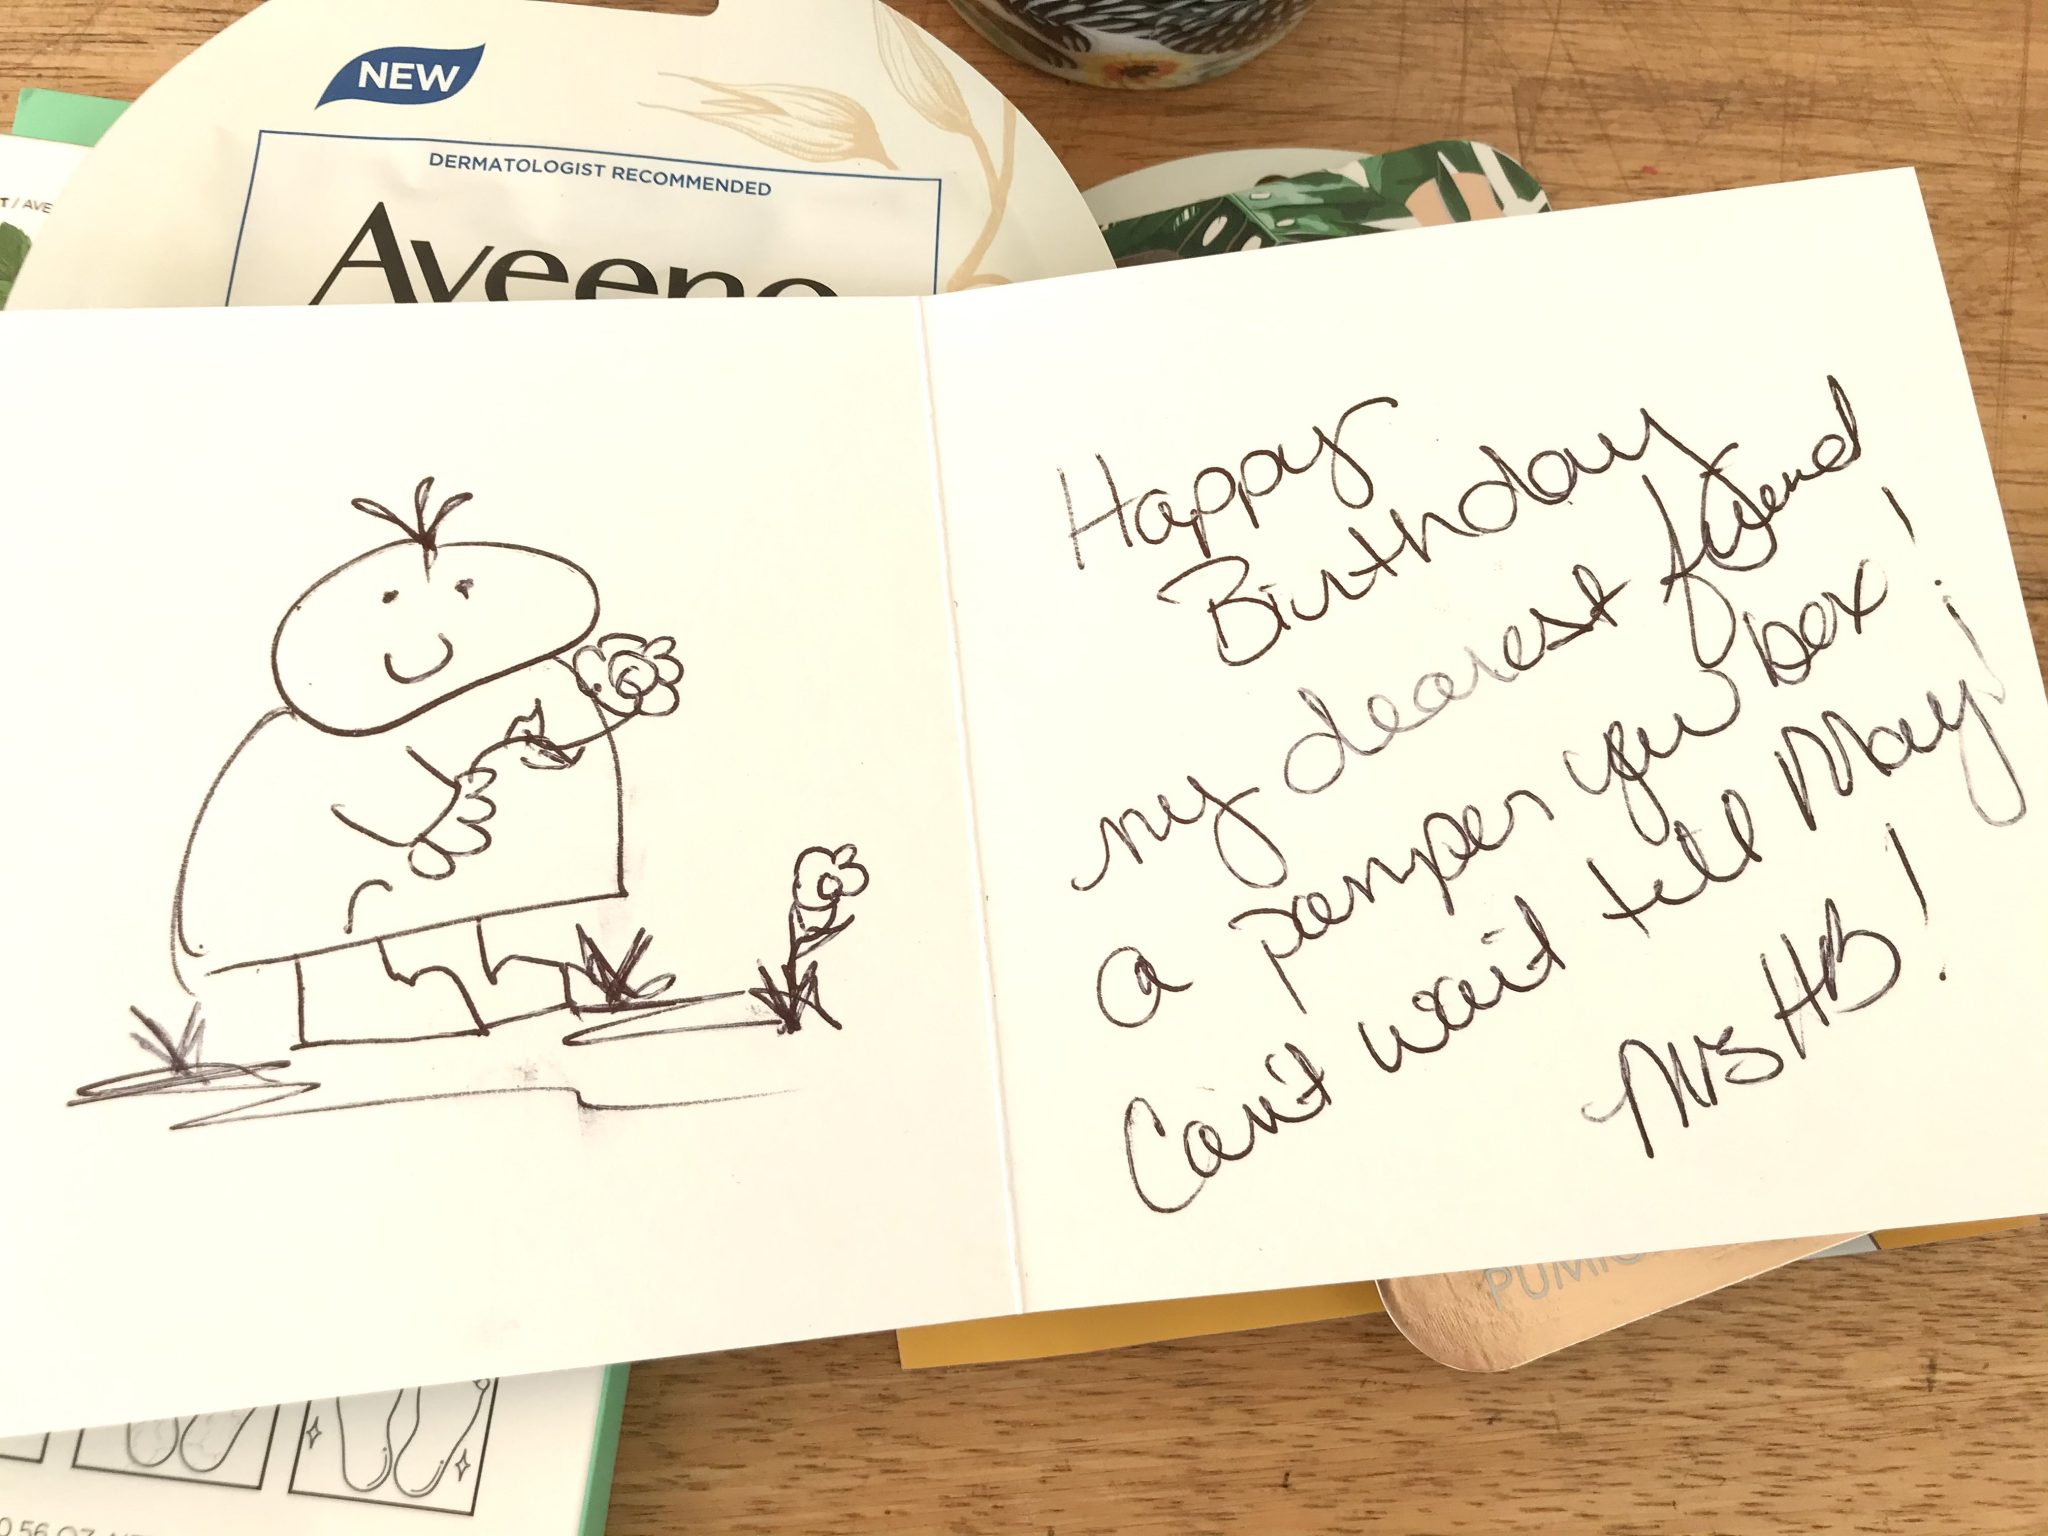 NEW
DERMATOLOGIST RECOMMENDED
Aveeno
T / AVE
Happy
Birthday
my dearest friend
a pamper you box!
Can't wait till May!
Mrs HB!
PUMIC
0.56 OZ